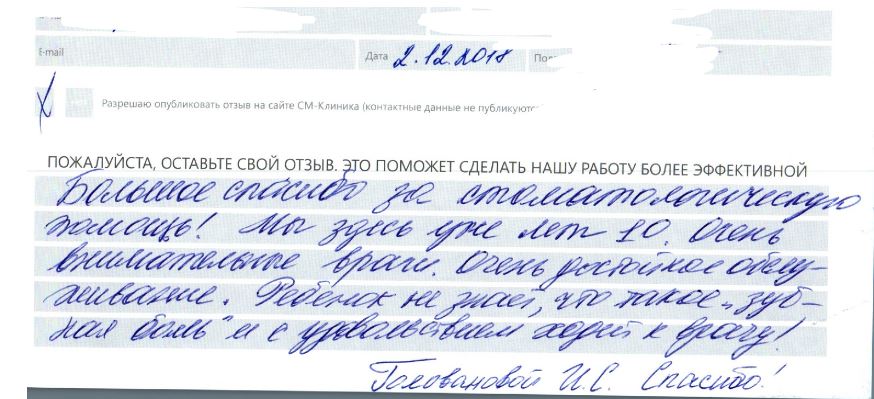 E-mail
Дата 2.12.2018
Разрешаю опубликовать отзыв на сайте СМ-Клиника (контактные данные не публикуютс
ПОЖАЛУЙСТА, ОСТАВЬТЕ СВОЙ ОТЗЫВ. ЭТО ПОМОЖЕТ СДЕЛАТЬ НАШУ РАБОТУ БОЛЕЕ ЭФФЕКТИВНОЙ
Большое спасибо за стоматологическую
помощь! Мы здесь уже лет 10. Очень
внимательные врачи. Очень достойное обслу-
живание. Ребенок не знает, что такое „зуб-
ная боль" и с удовольствием ходит к врачу!
Головановой И.С. Спасибо!